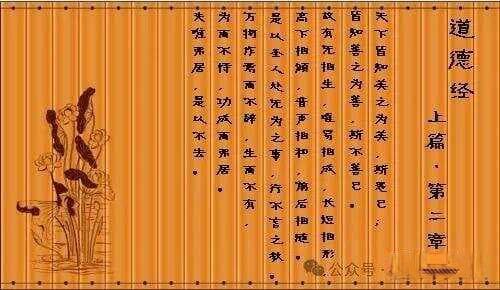 道德经
上篇·第二章
天下皆知美之为美，斯恶已；
皆知善之为善，斯不善已。
故有无相生，难易相成，长短相形
高下相倾，音声相和，前后相随。
是以圣人处无为之事，行不言之教。
万物作焉而不辞，生而不有，
为而不恃，功成而弗居。
夫唯弗居，是以不去。
公众号·